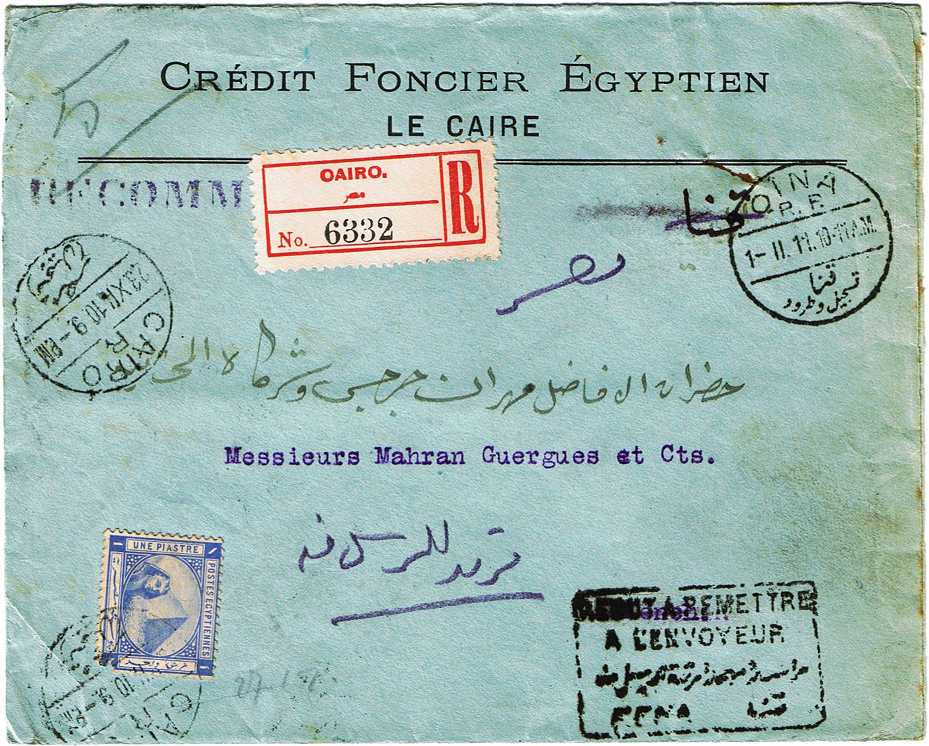 CRÉDIT FONCIER ÉGYPTIEN
LE CAIRE
RECOMM
CAIRO.
مصر
R
No. 6332
قنا
QINA
R.E
1- II. 11. 10-11 A.M.
قنا
تسجيل وطرود
مصر
23 XII. 10. 9 - PM
CAIRO
R
حضرات الافاضل مهران جرجس وشركاه
Messieurs Mahran Guergues et Cts.
ترتد للمرسل منه
UNE PIASTRE
POSTES EGYPTIENNES
1
1
REBUT A REMETTRE
A L'ENVOYEUR
KENA
قنا
10. 9 - PM
CAI
R